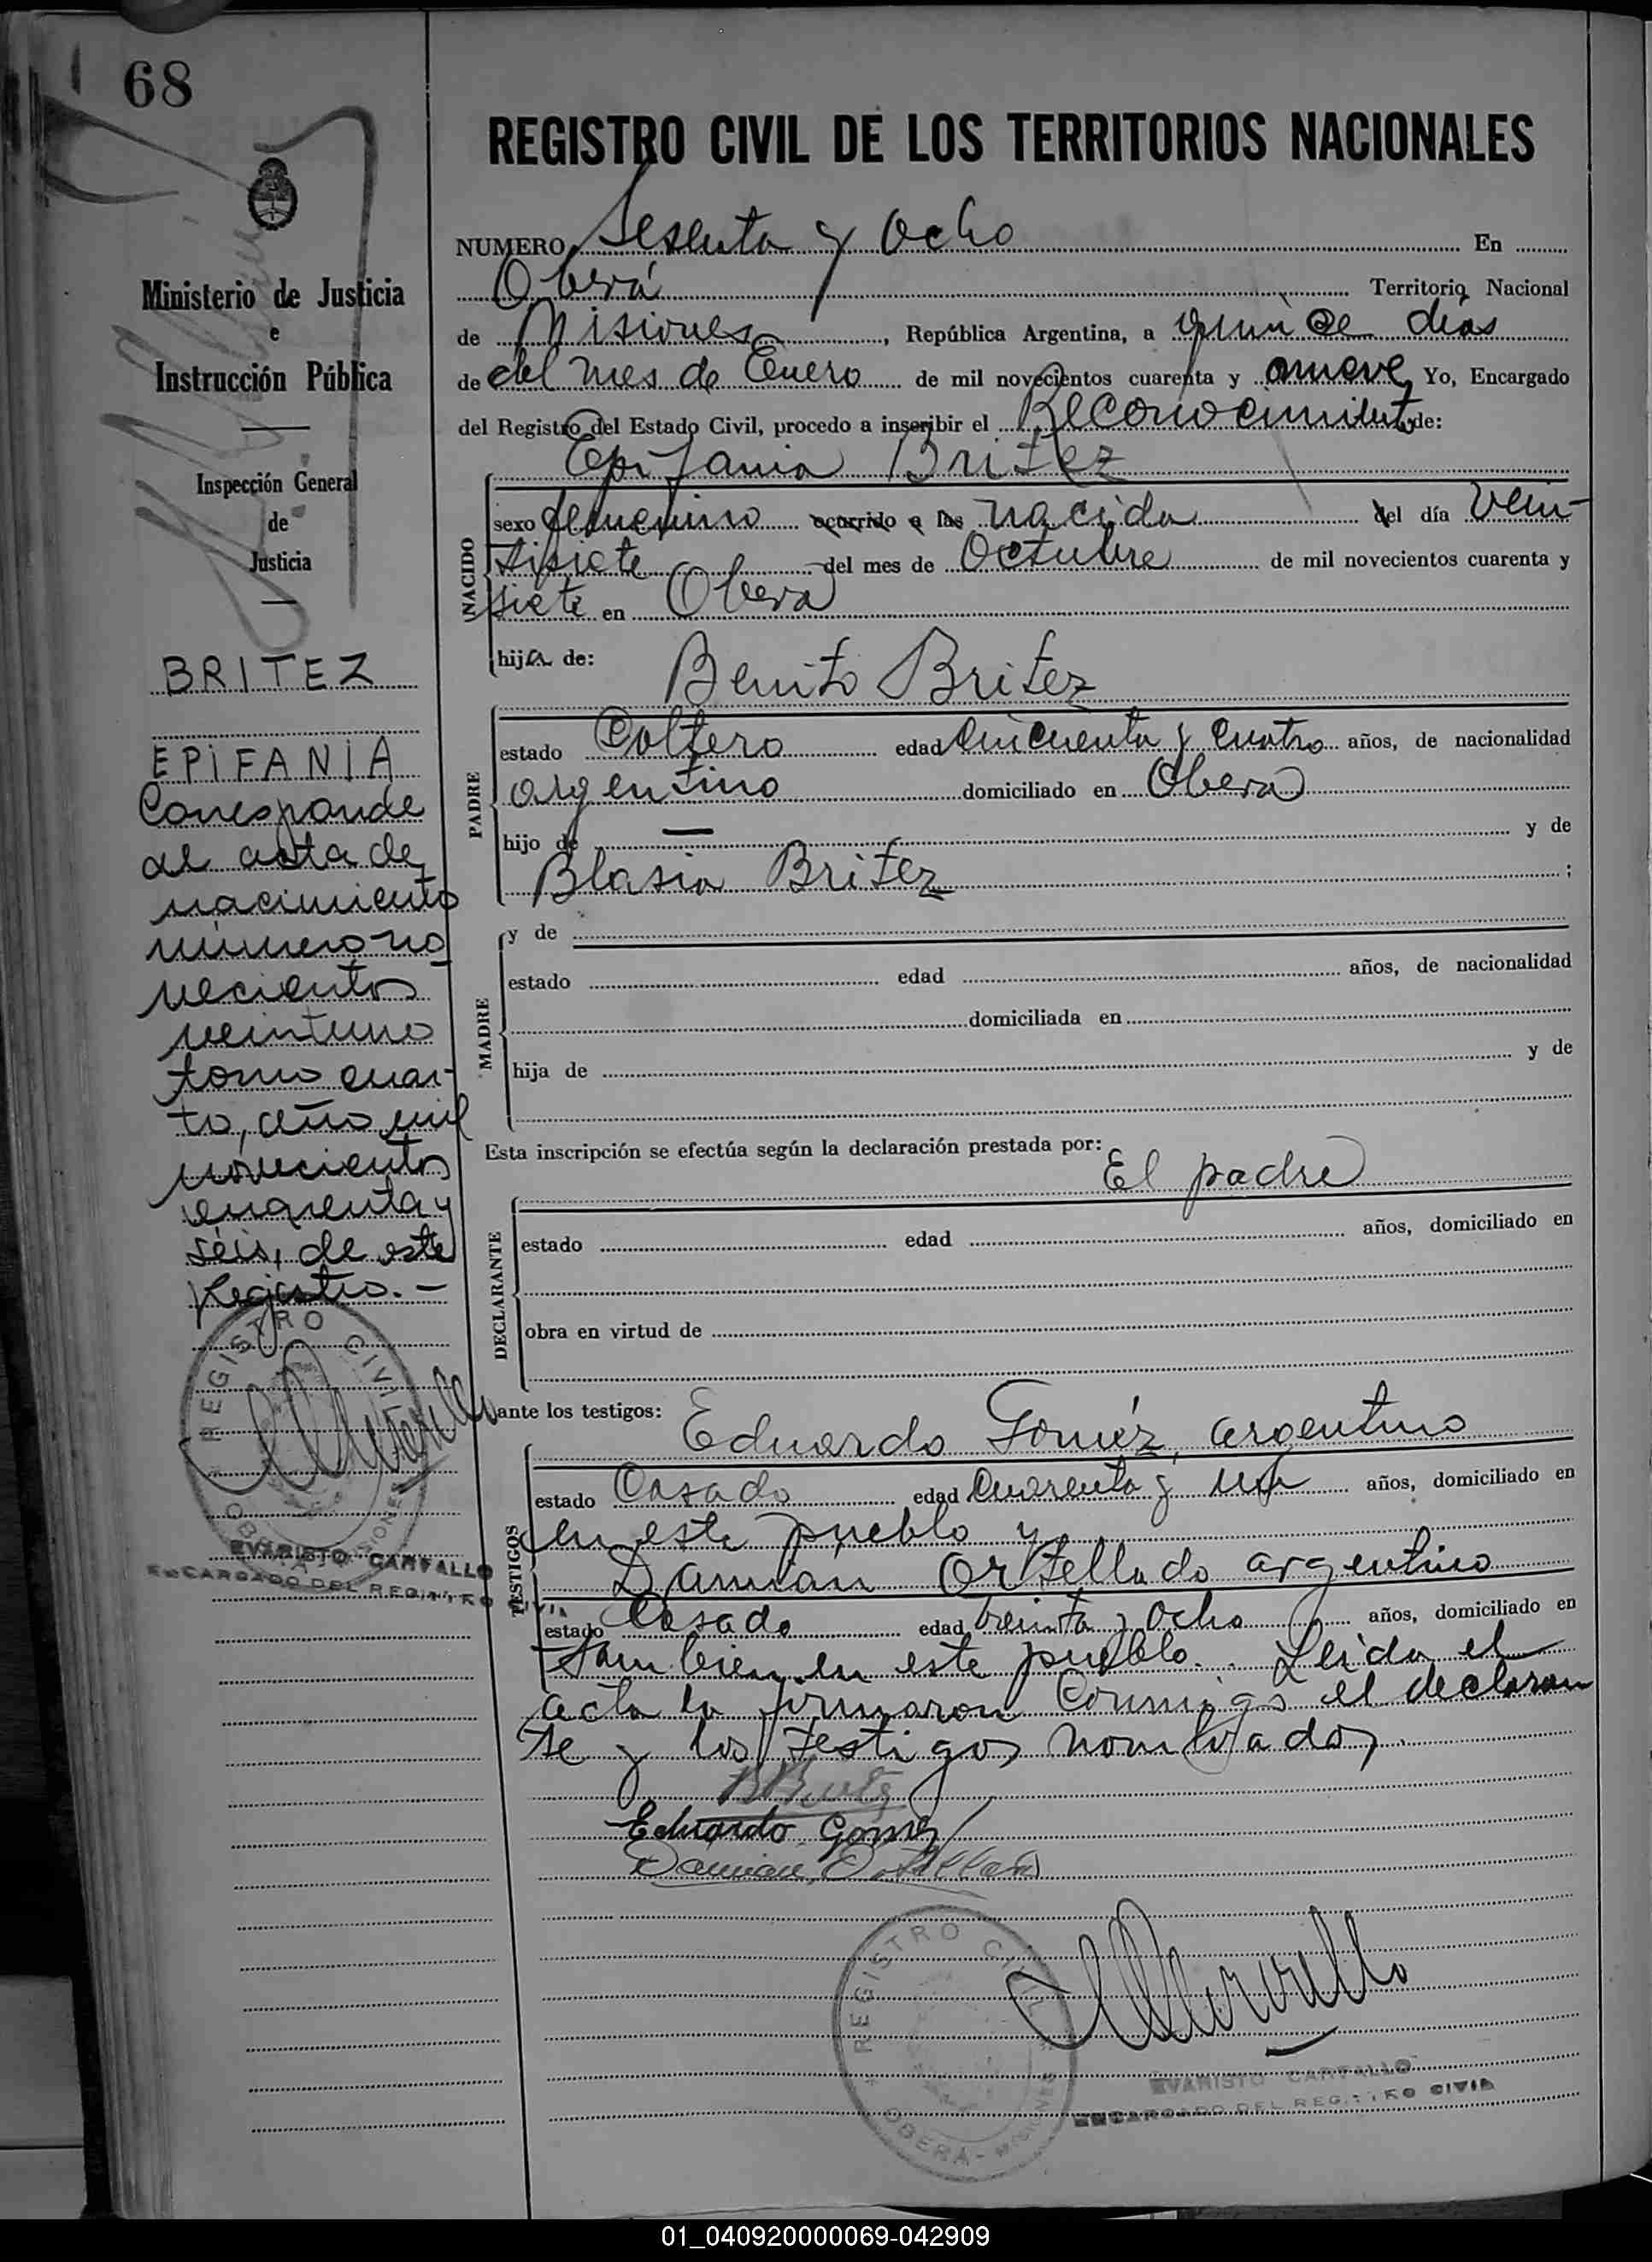 68
REGISTRO CIVIL DE LOS TERRITORIOS NACIONALES
Ministerio de Justicia
e
Instrucción Pública
Inspección General
de
Justicia
BRITEZ
EPIFANIA
Corresponde
al acta de
nacimiento
número no
vecientos
veintiuno
tomo cuar-
to, año mil
novecientos
cuarenta y
séis, de este
Registro.-
REGISTRO CIVIL
OBERA - MISIONES
EVARISTO CARVALLO
ENCARGADO DEL REGISTRO CIVIL
NUMERO Sesenta y Ocho En
Oberá Territorio Nacional
de Misiones, República Argentina, a quince dias
de del mes de Enero de mil novecientos cuarenta y nueve, Yo, Encargado
del Registro del Estado Civil, procedo a inscribir el Reconocimiento de:
Epifania Britez
NACIDO
sexo femenino ocurrido a las nacida del día Vein-
tisiete del mes de Octubre de mil novecientos cuarenta y
siete en Obera
hija de: Benito Britez
PADRE
estado Soltero edad Cincuenta y Cuatro años, de nacionalidad
argentino domiciliado en Obera
hijo de — y de
Blasia Britez ;
MADRE
y de
estado edad años, de nacionalidad
domiciliada en
hija de y de
Esta inscripción se efectúa según la declaración prestada por:
El padre
DECLARANTE
estado edad años, domiciliado en
obra en virtud de
ante los testigos: Eduardo Goméz, argentino
TESTIGOS
estado Casado edad Cuarenta y un años, domiciliado en
en este pueblo y
Damián Ortellado argentino
estado Casado edad treinta y Ocho años, domiciliado en
tambien en este pueblo. Leida el
acta la firmaron Conmigo el declaran
te y los testigos nombrados.
BBritez
Eduardo Gomez
Damian Ortellado
REGISTRO CIVIL
OBERA - MISIONES
EVARISTO CARVALLO
ENCARGADO DEL REGISTRO CIVIL
01_040920000069-042909